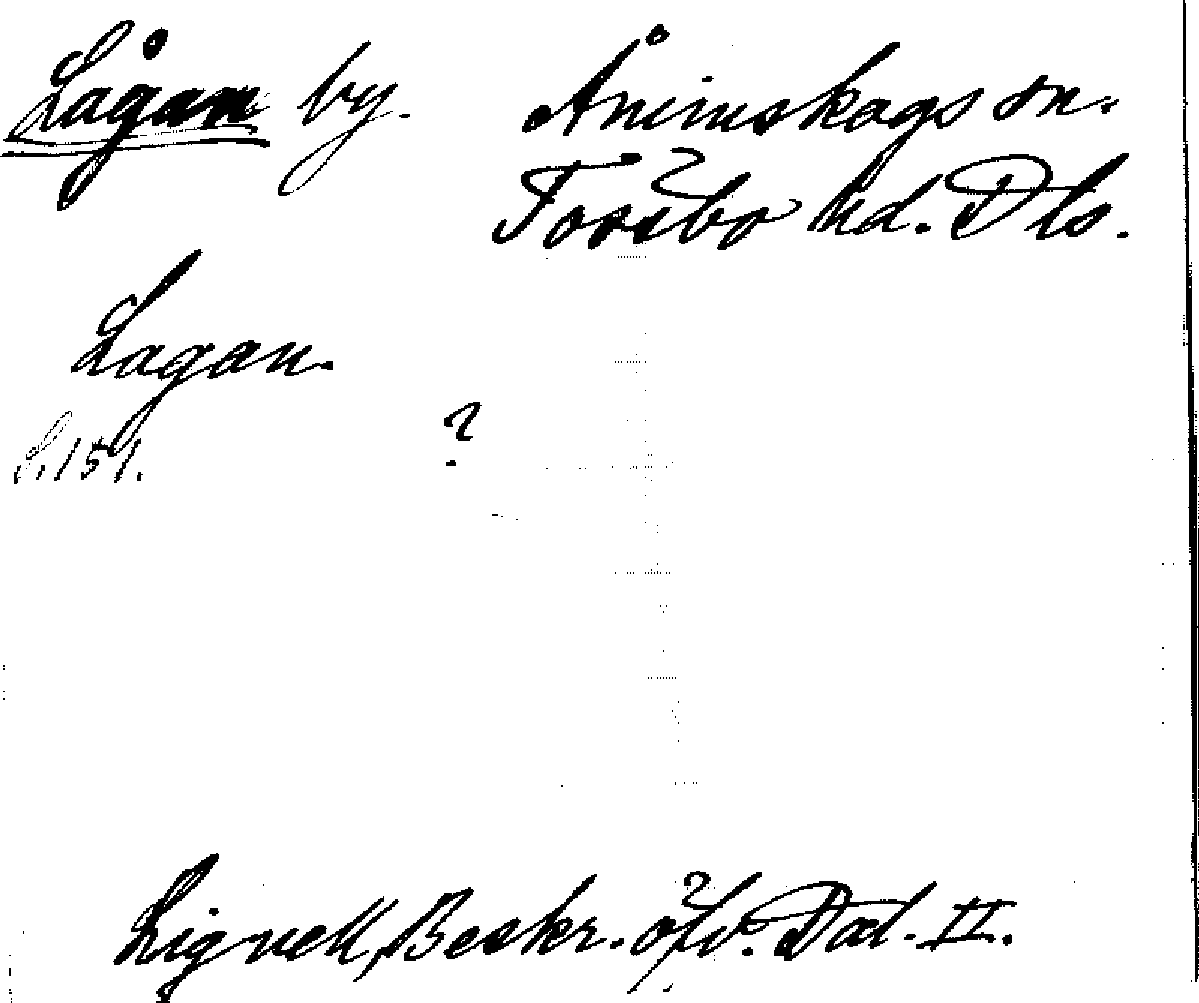 Lågan by. Ånimskogs sn.
Tössbo hd. Dls.
Lagan.
S. 151. ?
Lignell, Beskr. öfv. Dal. II.